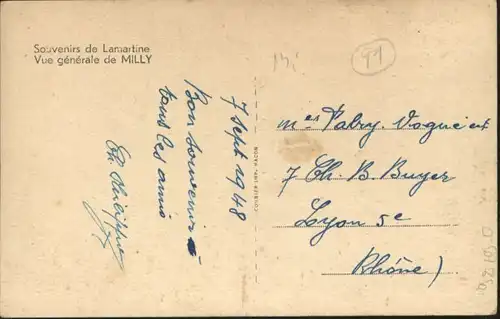 Souvenirs de Lamartine
Vue générale de MILLY
7 Sept 1948
Bon souvenir à
tous les amis
Ch. Philippe
91
mes Fabry. Vogue et
7 Ch. B. Buyer
Lyon 5e
Rhône)